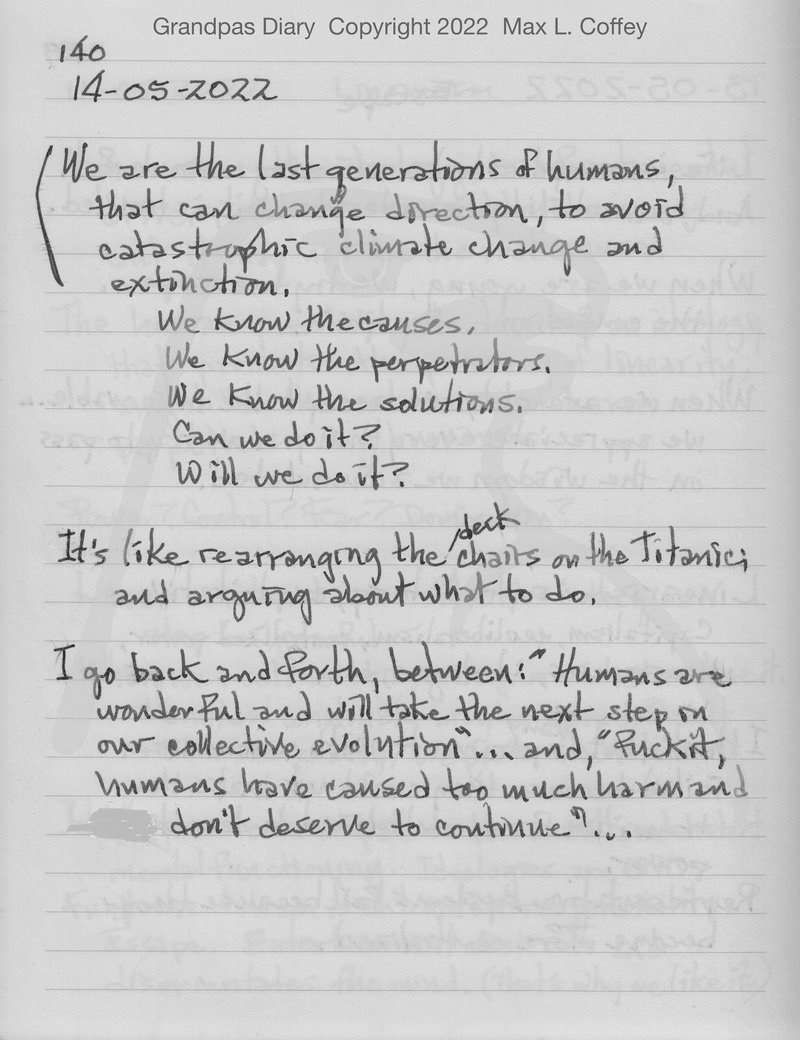 Grandpas Diary Copyright 2022 Max L. Coffey
140
14-05-2022
We are the last generations of humans,
that can change direction, to avoid
catastrophic climate change and
extinction.
We know the causes.
We know the perpetrators.
We know the solutions.
Can we do it?
Will we do it?
It's like rearranging the deck chairs on the Titanic;
and arguing about what to do.
I go back and forth, between: "Humans are
wonderful and will take the next step in
our collective evolution"... and, "Fuck it,
humans have caused too much harm and
don't deserve to continue"...